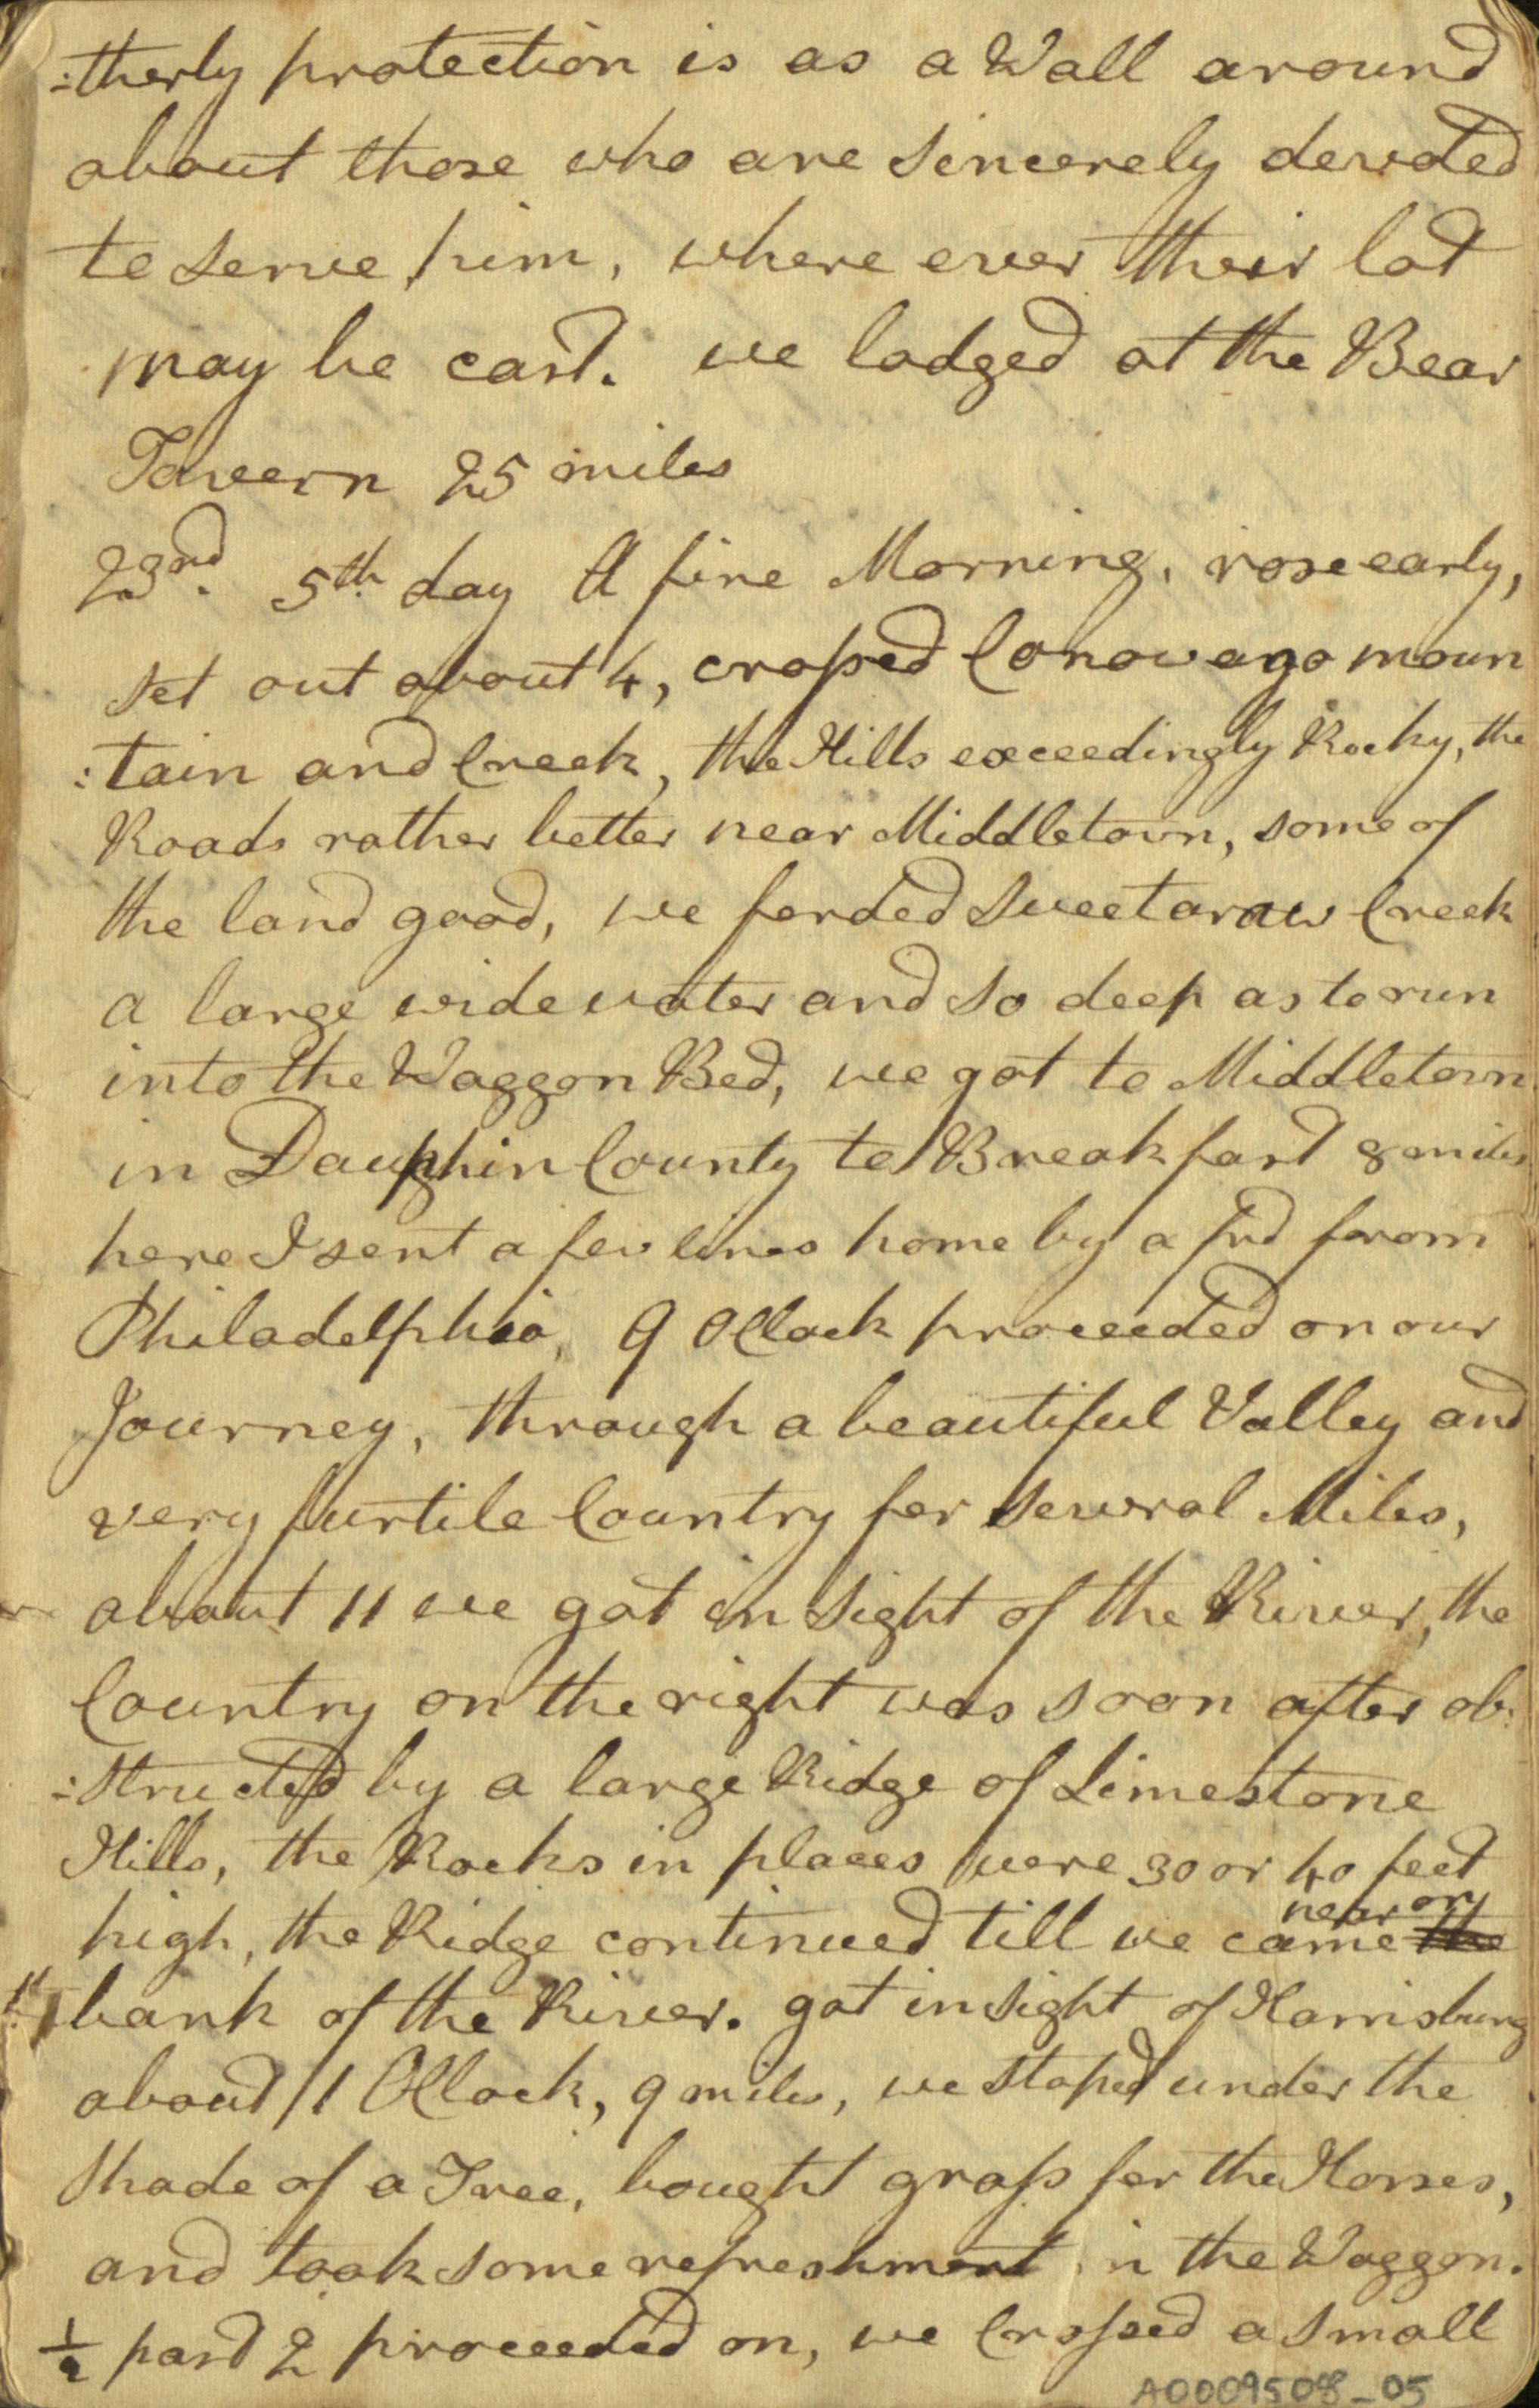 :therly protection is as a Wall around
about those who are sincerely devoted
to serve him, where ever their lot
may be cast. we lodged at the Bear
Tavern 25 miles
23nd. 5th day A fine Morning, rose early,
set out about 4, crossed Conowago moun
:tain and Creek, the Hills exceedingly Rocky, the
Roads rather better near Middletown, some of
the land good, we forded Sweetaraw Creek
a large wide water and so deep as to run
into the Waggon Bed, we got to Middletown
in Dauphin County to Breakfast 8 miles
here I sent a few lines home by a frd from
Philadelphia, 9 OClock proceeded on our
Journey, through a beautiful Valley and
very furtile Country for several Miles,
about 11 we got in sight of the River, the
Country on the right was soon after ob:
:structed by a large Ridge of Limestone
Hills, the Rocks in places were 30 or 40 feet
high, the Ridge continued till we came near or the
bank of the River. got in sight of Harrisburg
about 11 OClock, 9 miles, we stoped under the
Shade of a Tree, bought grass for the Horses,
and took some refreshment in the Waggon.
½ past 2 proceeded on, we Crossed a small
A0009508_05